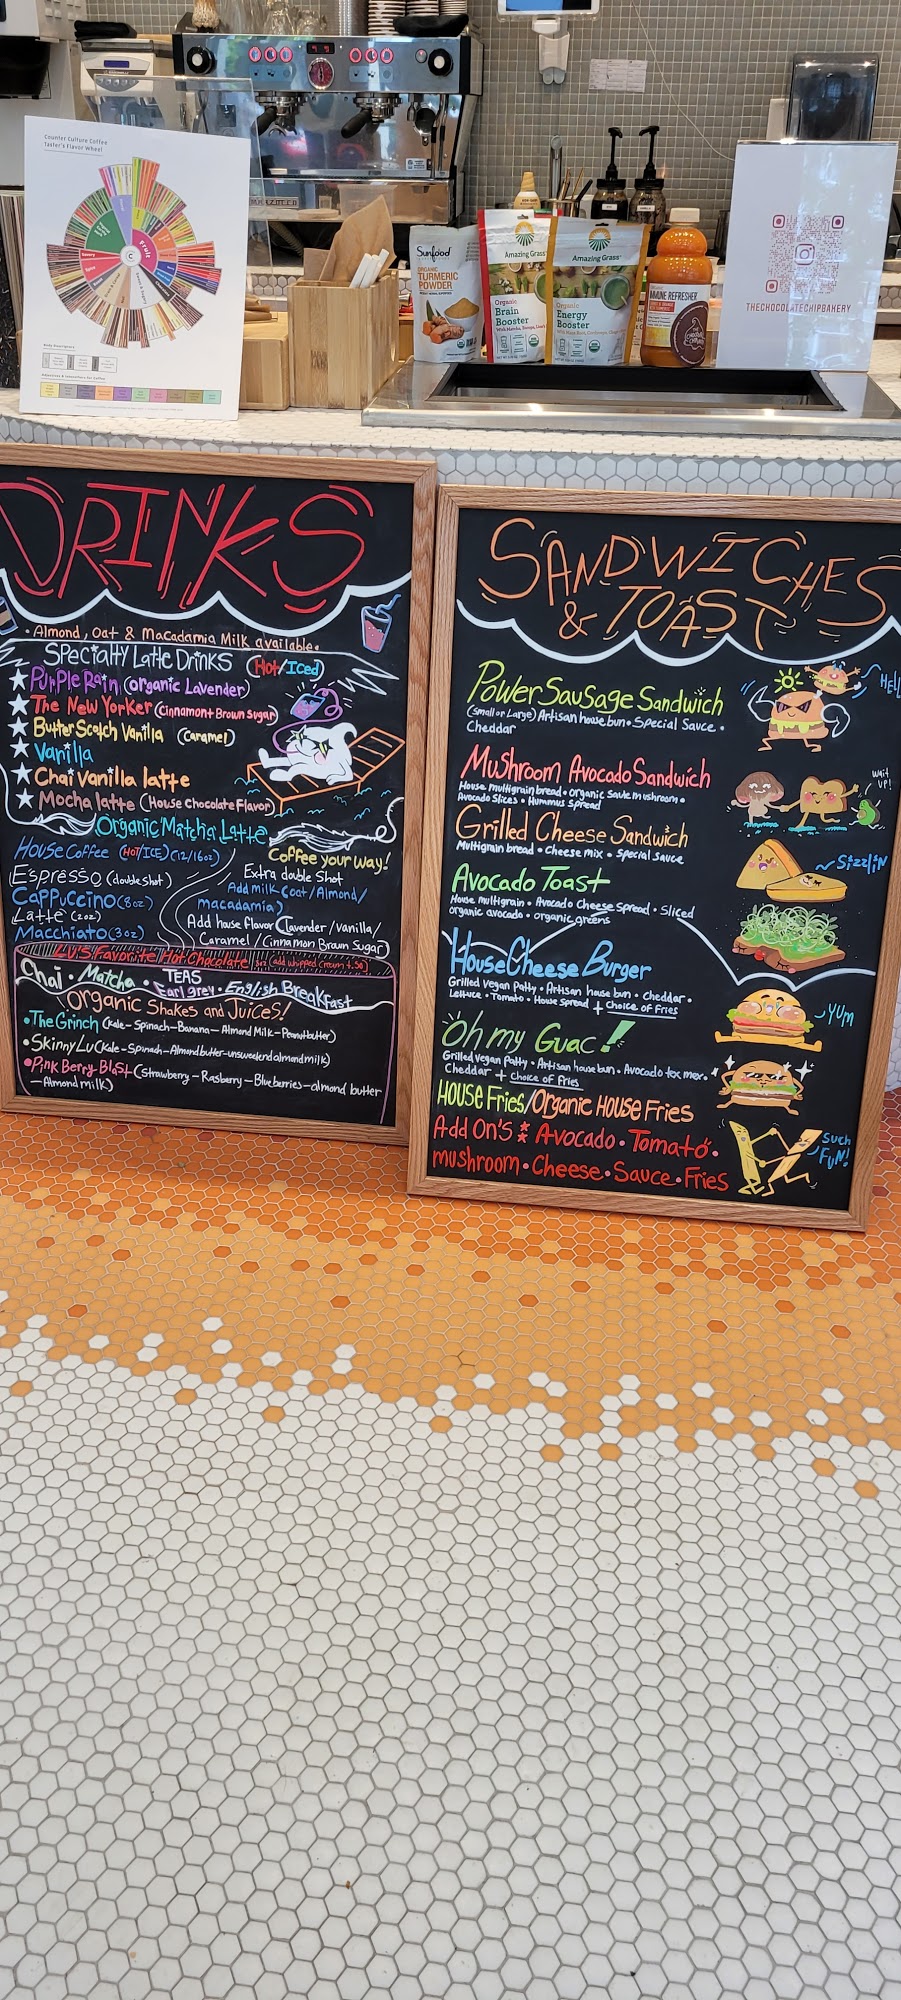 Counter Culture Coffee
Taster's Flavor Wheel
Fruit
Savory
Spice
C
Sunfood
ORGANIC
TURMERIC
POWDER
Amazing Grass
Organic
Brain
Booster
Amazing Grass
Organic
Energy
Booster
MAINE REFRESHER
THECHOCOLATECHIPBAKERY
DRINKS
• Almond, Oat & Macadamia Milk available.
Specialty Latte Drinks (Hot/Iced)
Purple Rain (organic Lavender)
The New Yorker (Cinnamon+Brown Sugar)
ButterScotch Vanilla (Caramel)
Vanilla
Chai Vanilla latte
Mocha latte (House Chocolate Flavor)
Organic Matcha Latte
House Coffee (HOT/ICE) (12/16oz)
Espresso (double shot)
Cappuccino (8oz)
Latte (12oz)
Macchiato (3oz)
Coffee your way!
Extra double Shot
Add milk (oat/Almond/
macadamia)
Add house flavor (lavender/vanilla/
Caramel/Cinnamon Braun Sugar)
LV'S Favorite Hot Chocolate
Chai • Matcha • TEAS
Earl grey • English Breakfast
Organic Shakes and Juices!
• The Grinch (Kale-Spinach-Banana-Almond Milk-Peanutbutter)
• Skinny Lu (Kale-Spinach-Almondbutter-unsweetendalmondmilk)
• Pink Berry Blast (Strawberry-Rasberry-Blueberries-almond butter
-Almond milk)
SANDWICHES
& TOAST
Power Sausage Sandwich
(Small or Large) Artisan house bun • Special Sauce •
Cheddar
HELL
Mushroom Avocado Sandwich
House multigrain bread • organic Saute mushroom •
Avocado Slices • Hummus spread
Wait
UP!
Grilled Cheese Sandwich
Multigrain bread • Cheese mix • Special sauce
SizzliN
Avocado Toast
House multigrain • Avocado Cheese Spread • Sliced
organic avocado • organic greens
House Cheese Burger
Grilled Vegan Patty • Artisan house bun • Cheddar •
Lettuce • Tomato • House Spread + Choice of Fries
YUM
Oh my Guac!
Grilled Vegan Patty • Artisan house bun • Avocado tex mex •
Cheddar + Choice of Fries
HOUSE Fries/Organic HOUSE Fries
Add On's: Avocado • Tomato •
mushroom • Cheese • Sauce • Fries
SUCH
FUN!